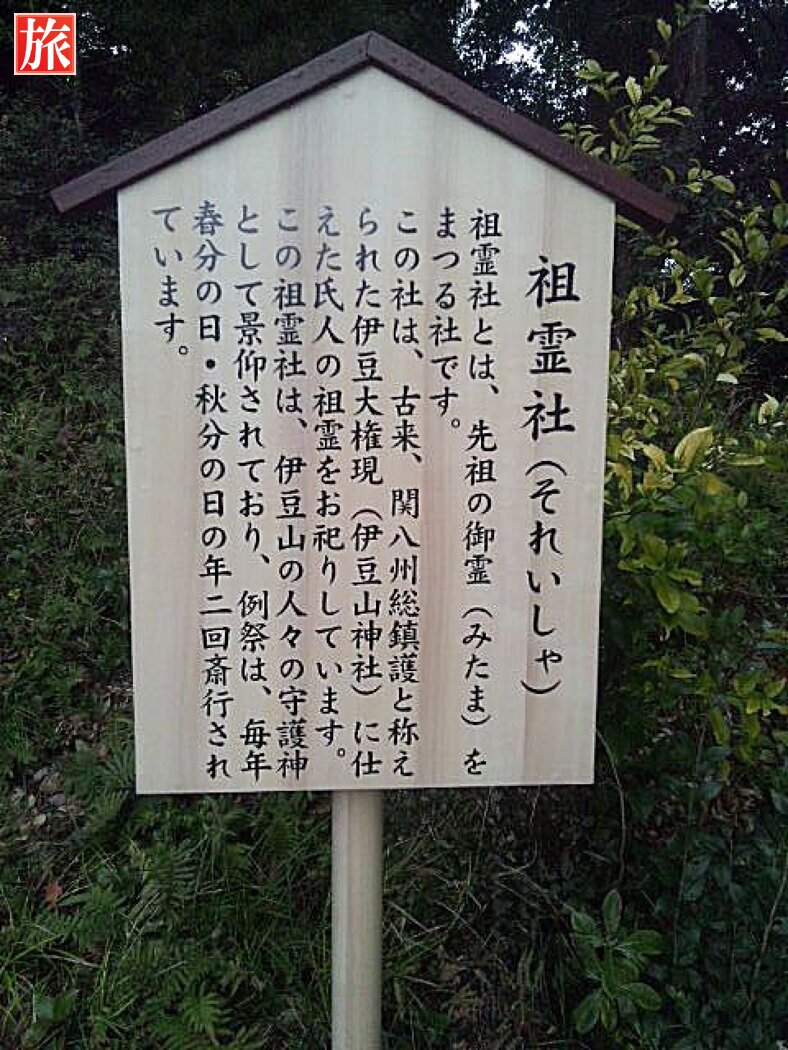 旅
祖霊社（それいしゃ）
祖霊社とは、先祖の御霊（みたま）を
まつる社です。
この社は、古来、関八州総鎮護と称え
られた伊豆大権現（伊豆山神社）に仕
えた氏人の祖霊をお祀りしています。
この祖霊社は、伊豆山の人々の守護神
として景仰されており、例祭は、毎年
春分の日・秋分の日の年二回斎行され
ています。